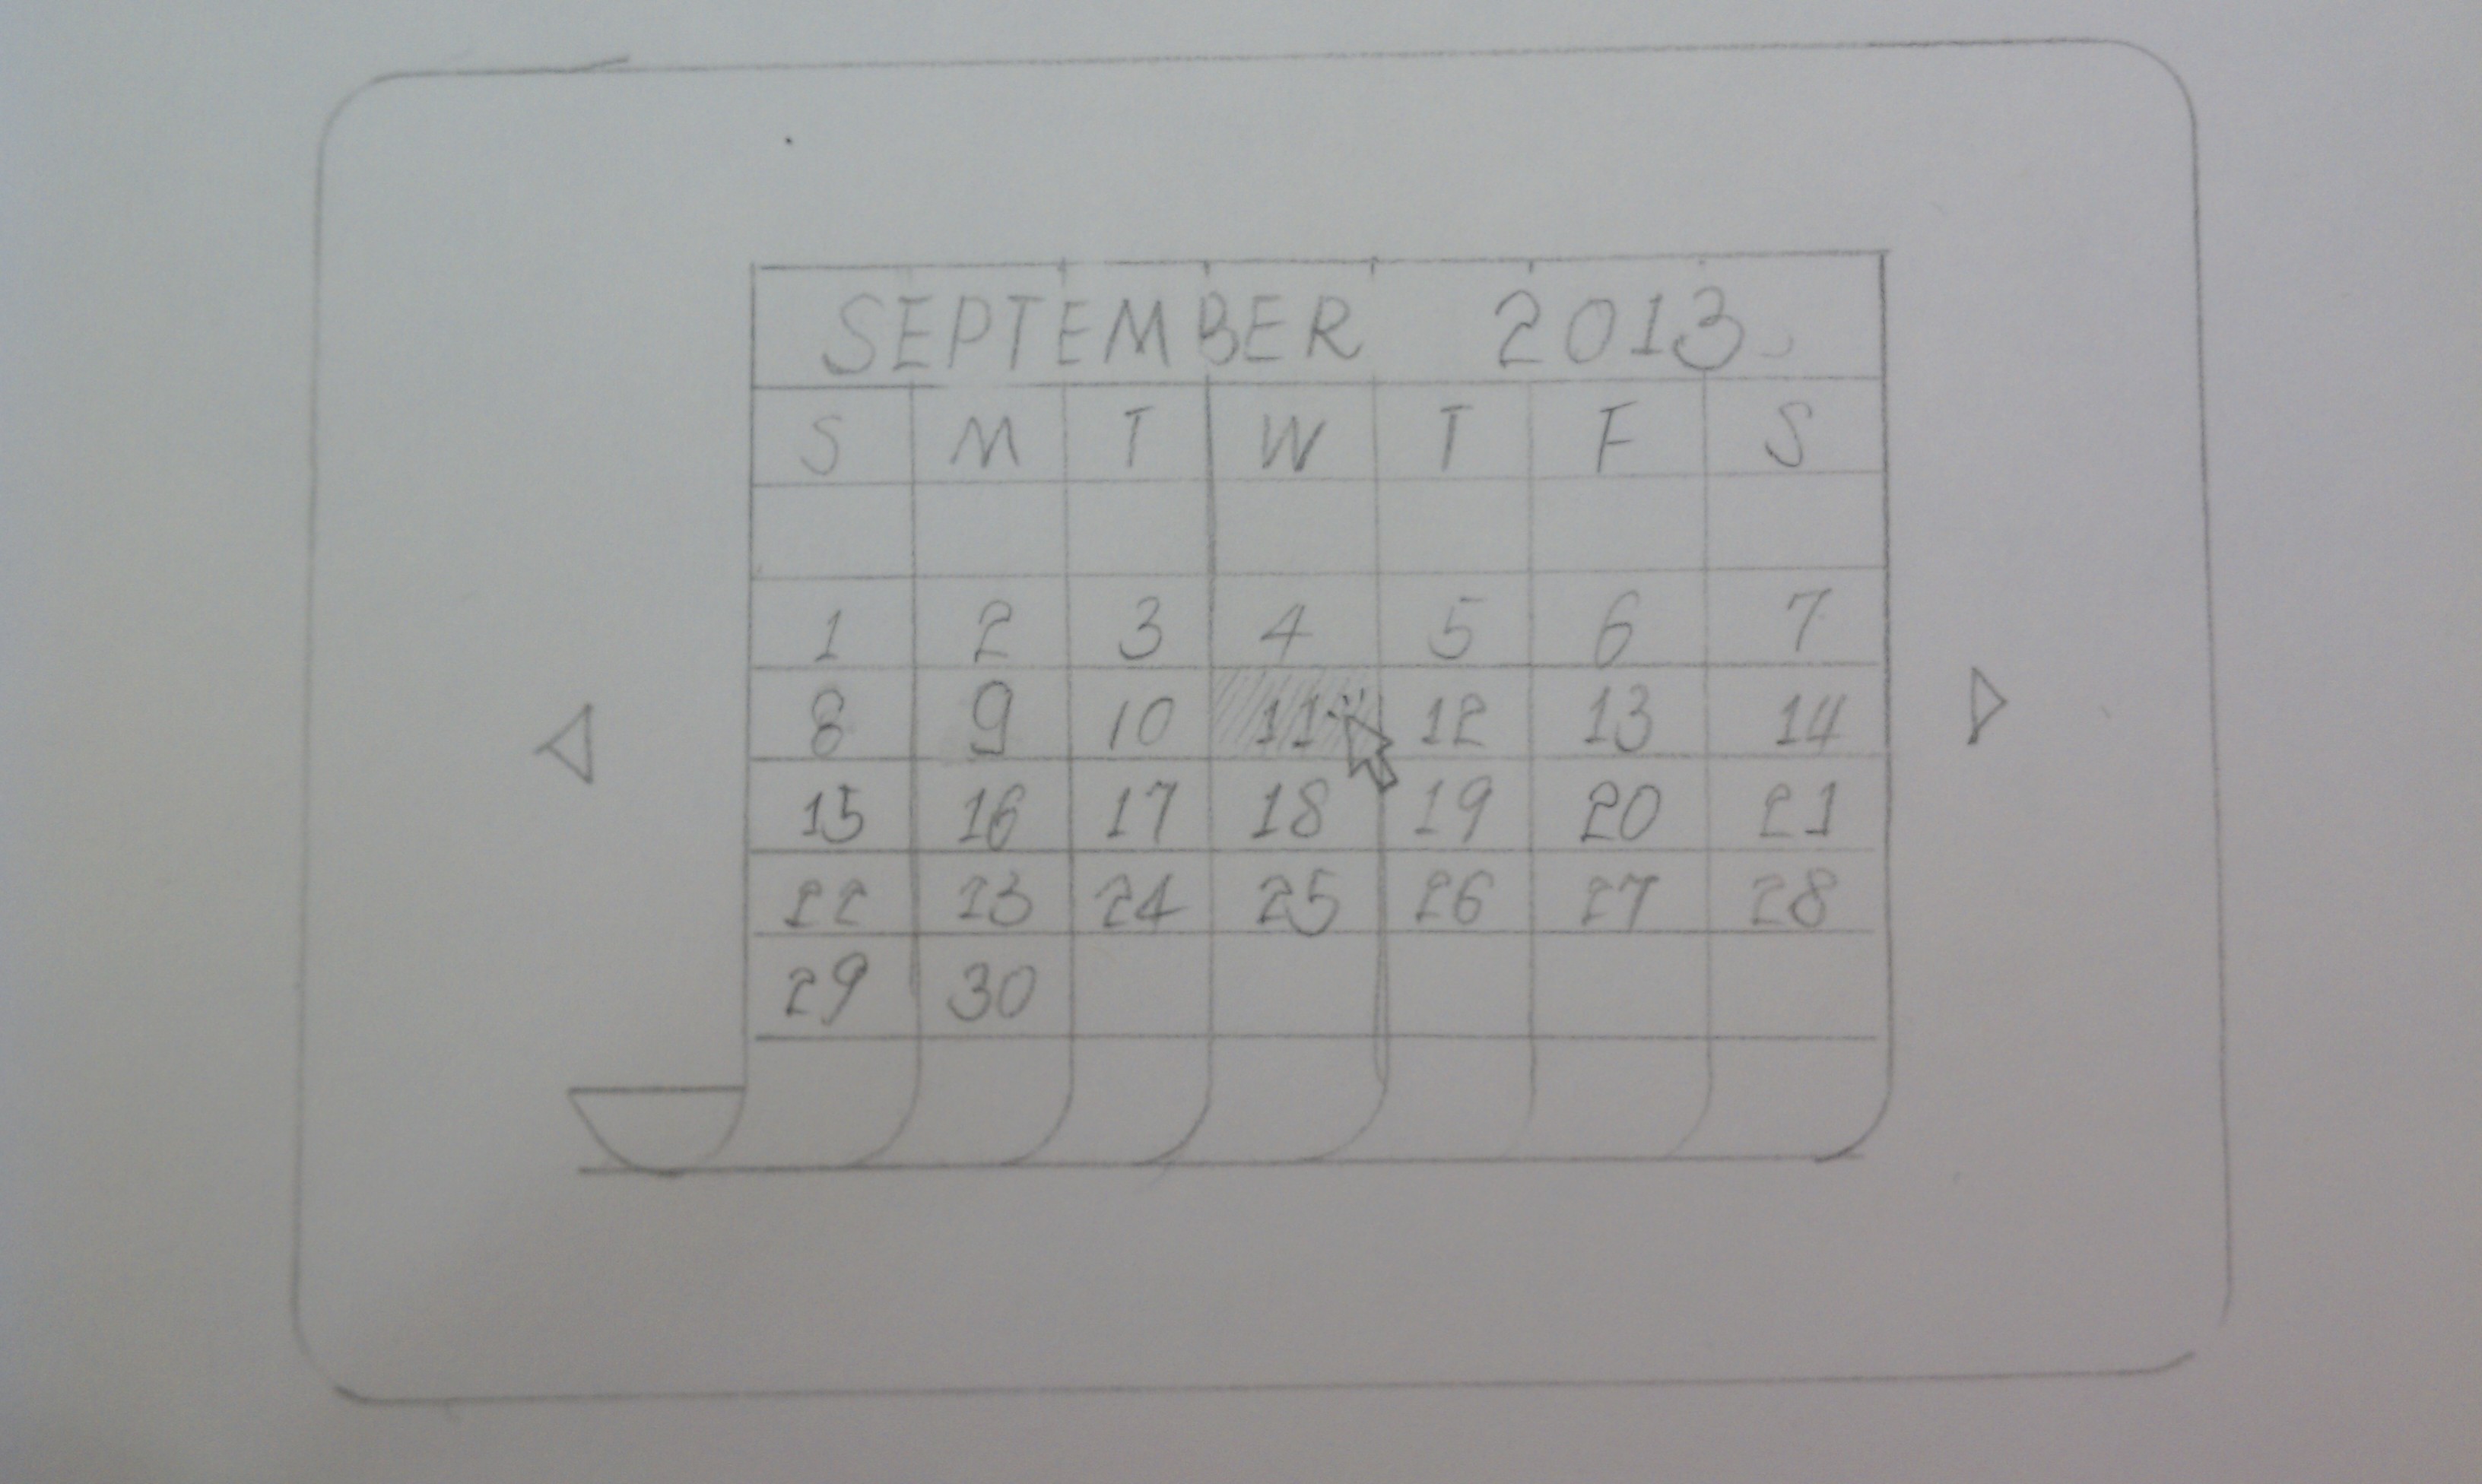 SEPTEMBER 2013
S M T W T F S
1 2 3 4 5 6 7
8 9 10 11 12 13 14
15 16 17 18 19 20 21
22 23 24 25 26 27 28
29 30